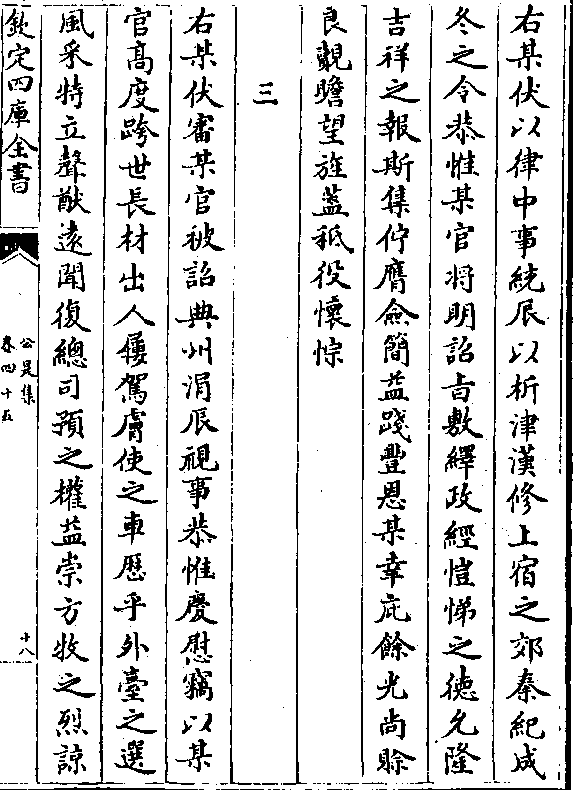 右某伏以律中事統辰以析津漢修上宿之郊秦紀成
冬之令恭惟某官将明詔㫖敷繹政經愷悌之徳允隆
吉祥之報斯集佇膺僉簡益踐豐恩某幸庇餘光尚賖
良覿瞻望旌蓋秪役懷悰
三
右某伏審某官被詔典州涓辰視事恭惟慶慰竊以某
官髙度跨世長材出人屢駕膚使之車歴乎外臺之選
風采特立聲猷逺聞復總司預之權益崇方牧之烈諒
欽定四庫全書
公是集
卷四十五
十八